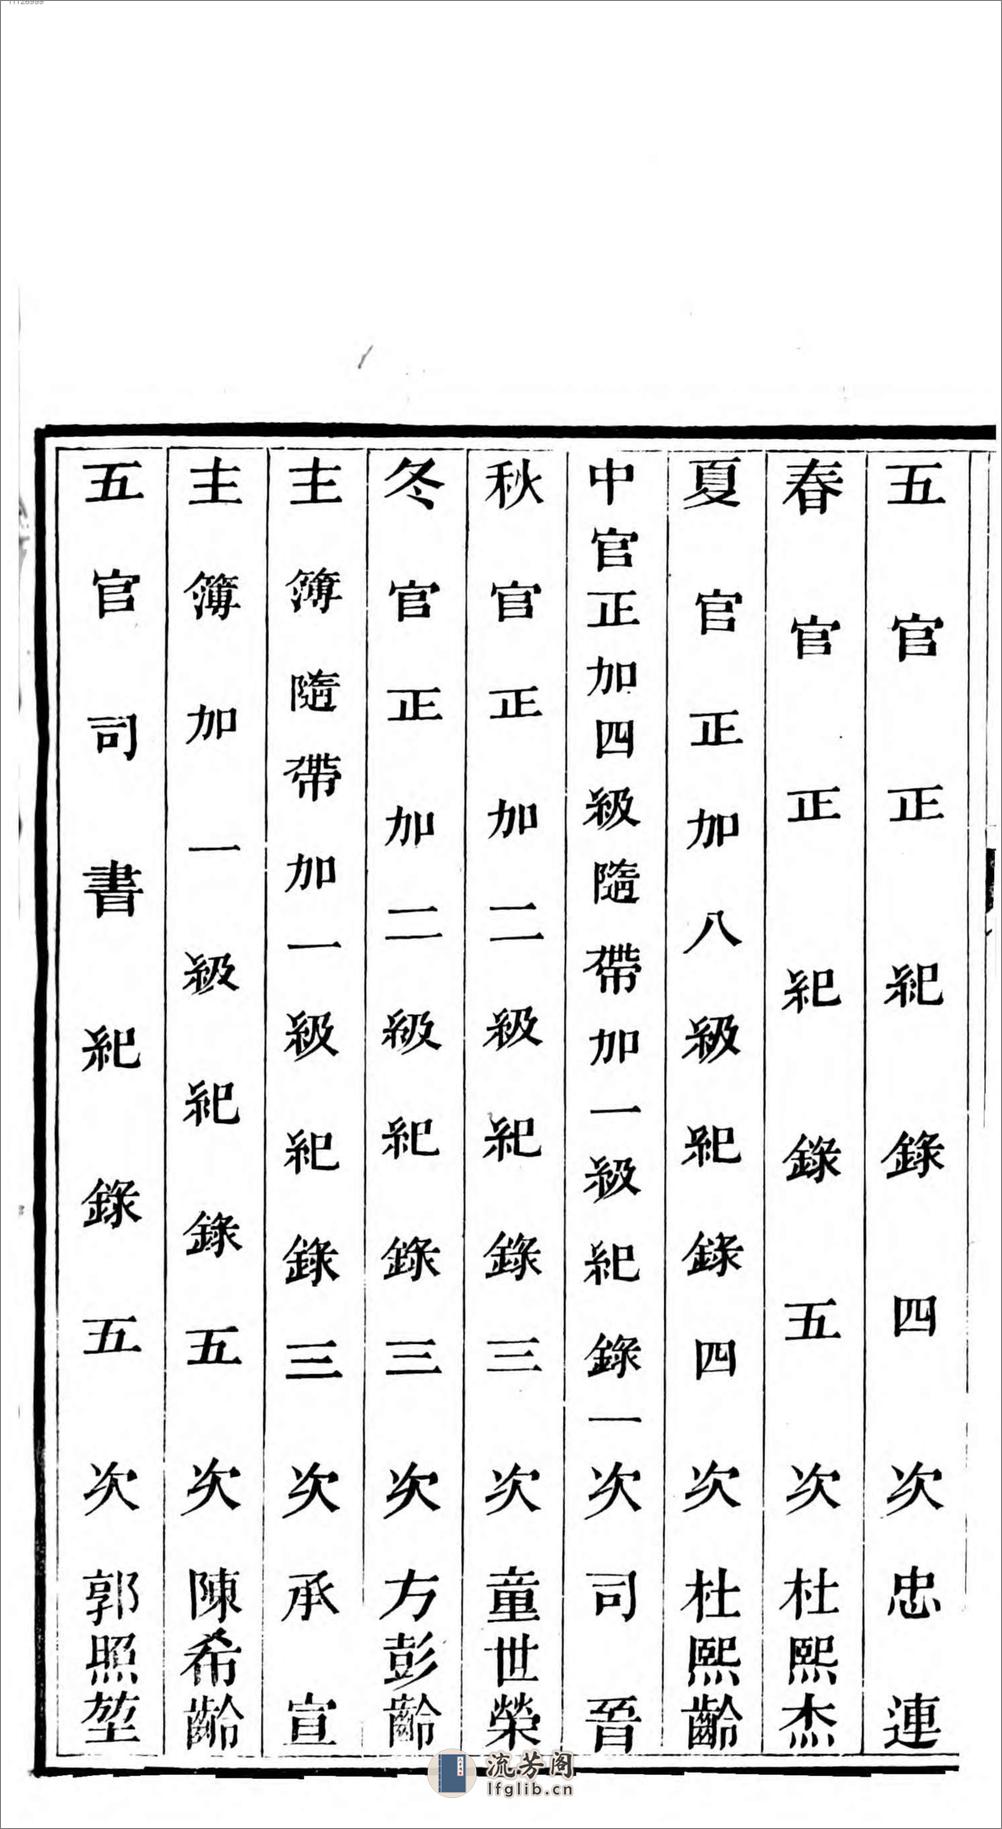 11126999
五官正紀錄四次忠連
春官正紀錄五次杜熙杰
夏官正加八級紀錄四次杜熙齡
中官正加四級隨帶加一級紀錄一次司晉
秋官正加二級紀錄三次童世榮
冬官正加二級紀錄三次方彭齡
主簿隨帶加一級紀錄三次承宣
主簿加一級紀錄五次陳希齡
五官司書紀錄五次郭照堃
流芳阁
lfglib.cn